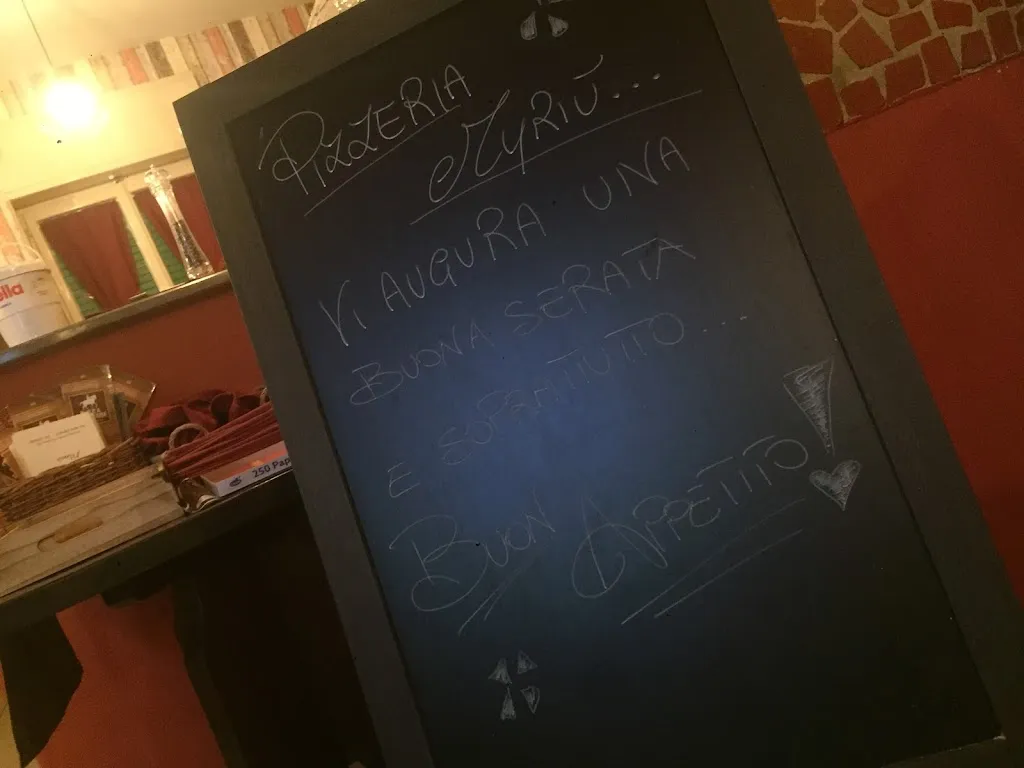 PIZZERIA
MYRIÙ...
VI AUGURA UNA
BUONA SERATA
E SOPRATTUTTO...
BUON APPETITO
250 Pap